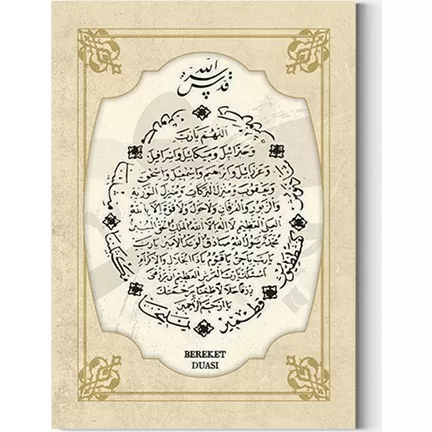 اللهم يا رب
وجبرائيل وميكائيل واسرافيل
وعزرائيل وابراهيم واسمعيل واسحق
ويعقوب ومنزل البركات ومنزل التورية
والزبور والفرقان ولا حول ولا قوة الا بالله
العلي العظيم لا اله الا الله الملك الحق المبين
محمد رسول الله صادق الوعد الامين يا رب
يا رب يا حي يا قيوم يا ذا الجلال والاكرام
اسئلك يا رب العرش العظيم ان ترزقني
رزقا حلالا طيبا برحمتك
يا ارحم الراحمين
قطمير
يمليخا
BEREKET
DUASI